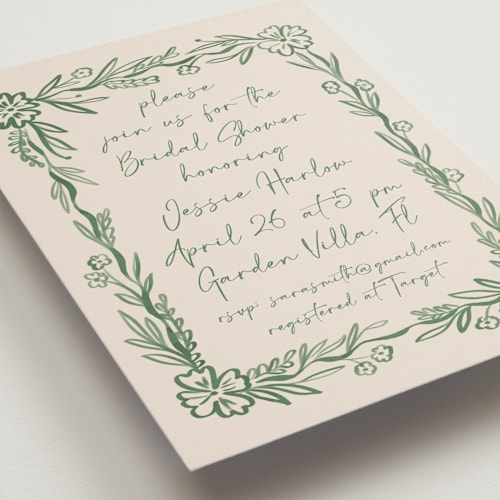 please
join us for the
Bridal Shower
honoring
Jessie Harlow
April 26 at 5 pm
Garden Villa, Fl
rsvp: sarasmith@gmail.com
registered at Target